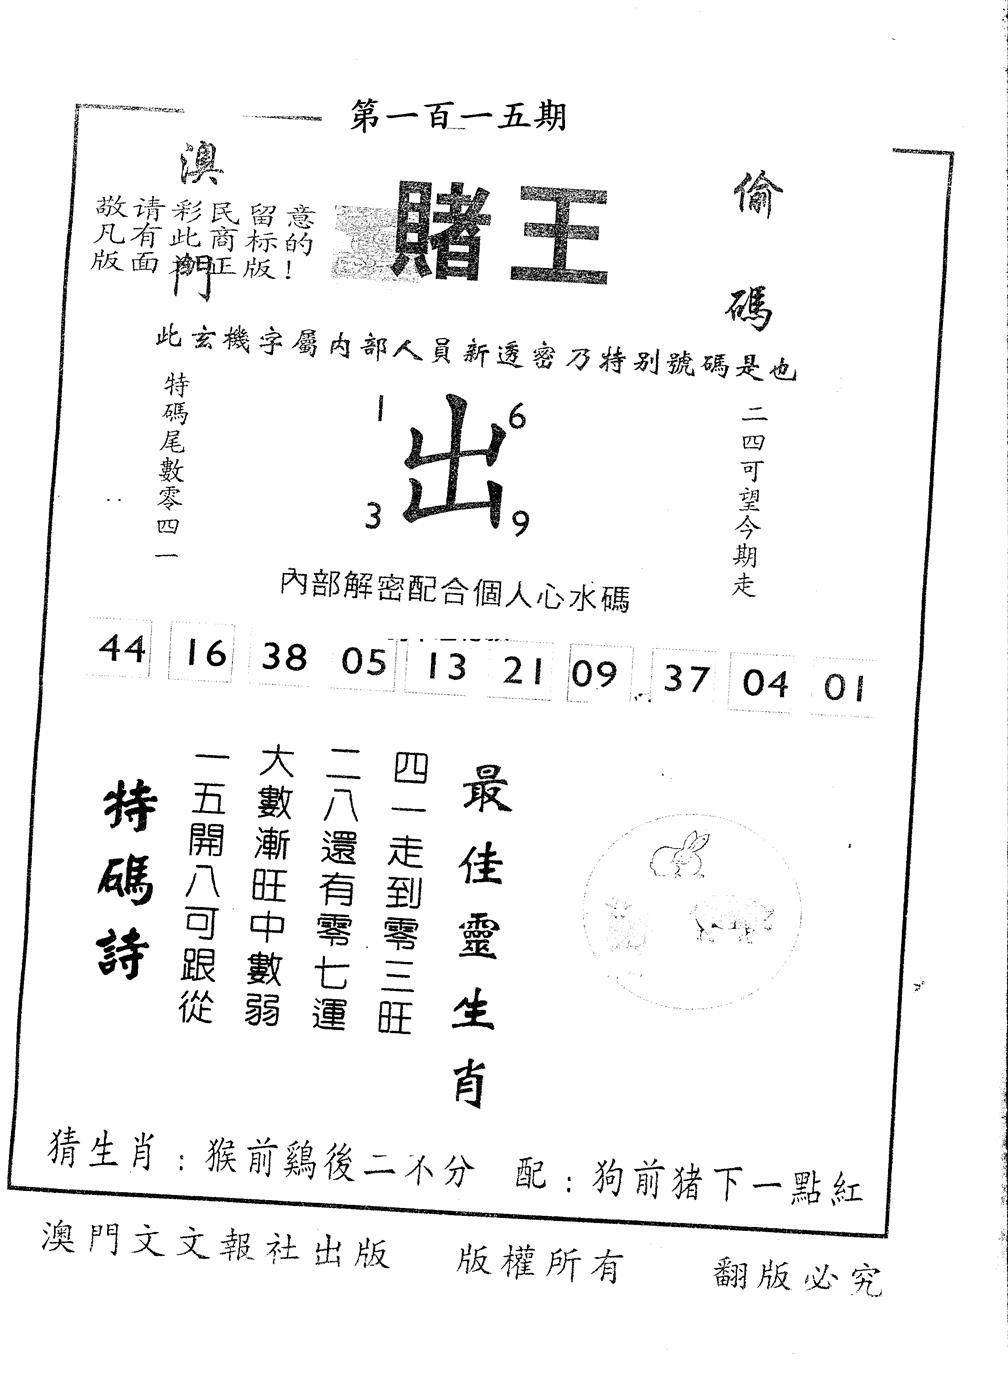 第一百一十五期
澳門
敬请彩民留意
凡有此商标的
版面為正版!
賭王
偷碼
此玄機字屬内部人員新透密乃特别號碼是也
特碼尾數零四一
1 6
出
3 9
二四可望今期走
內部解密配合個人心水碼
44 16 38 05 13 21 09 37 04 01
最佳靈生肖
四一走到零三旺
二八還有零七運
大數漸旺中數弱
一五開八可跟從
特碼詩
猜生肖:猴前鷄後二不分 配:狗前猪下一點紅
澳門文文報社出版 版權所有 翻版必究